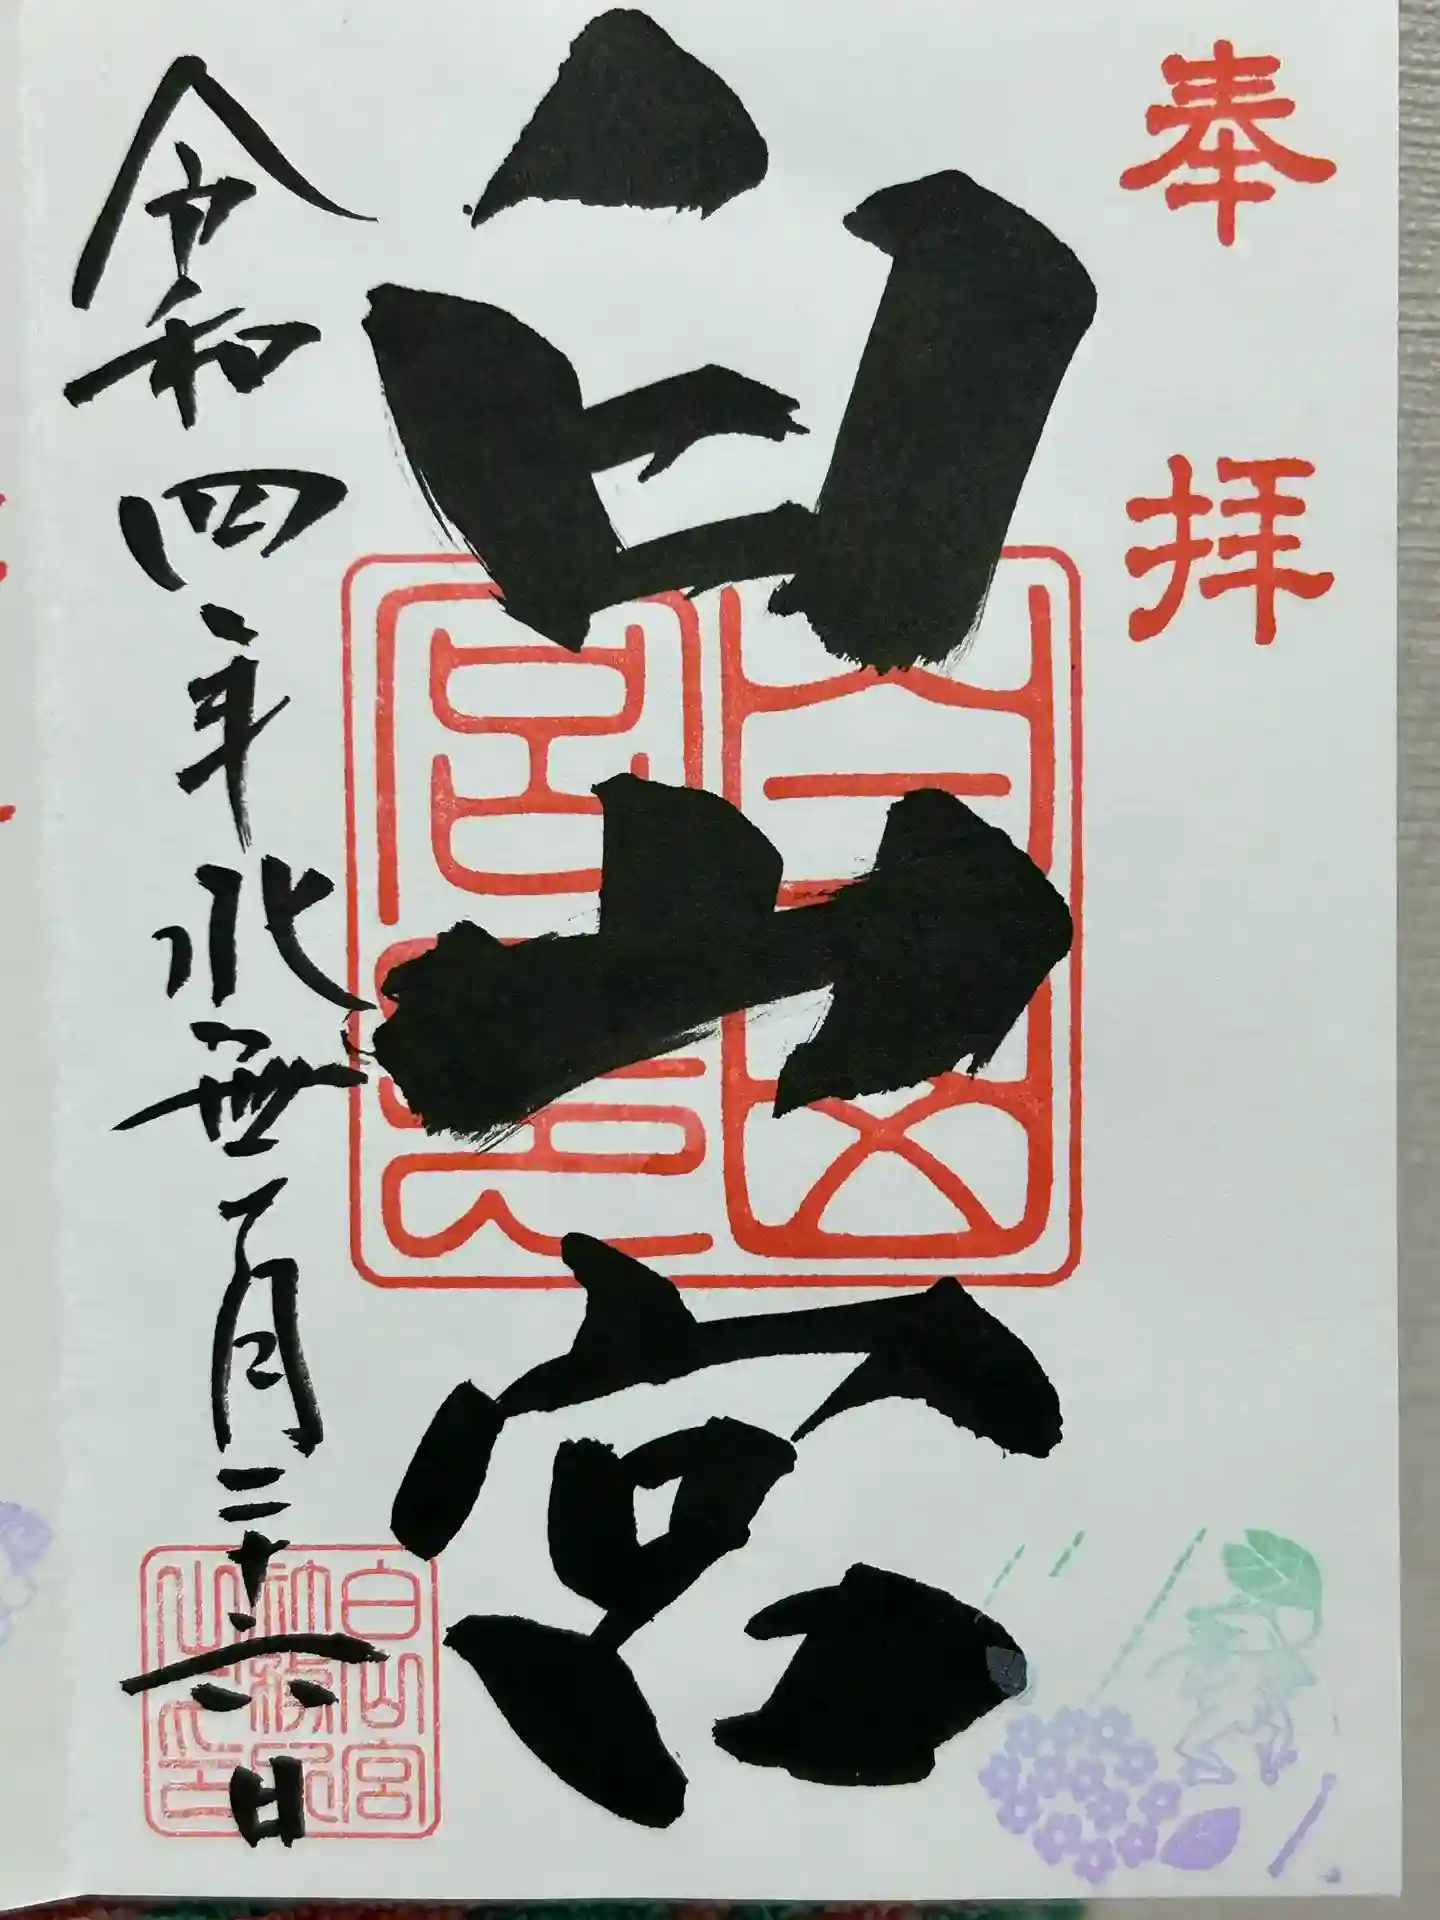 奉拝
白山宮
白山宮印
令和四年水無月二十六日
白山宮
社務所
之印